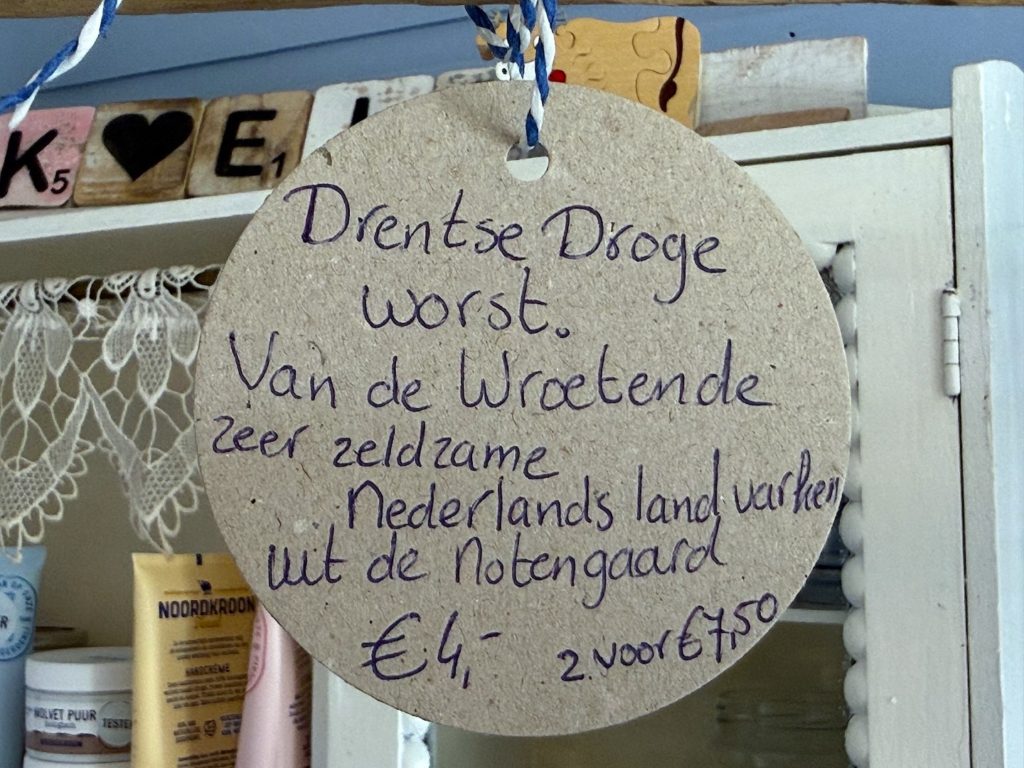 K5 ♥ E1
Drentse Droge
worst.
Van de Wroetende
zeer zeldzame
Nederlands land varken
uit de notengaard
€ 4,- 2 voor €7,50
NOORDKROON
HANDCRÈME
WOLVET PUUR
TESTER